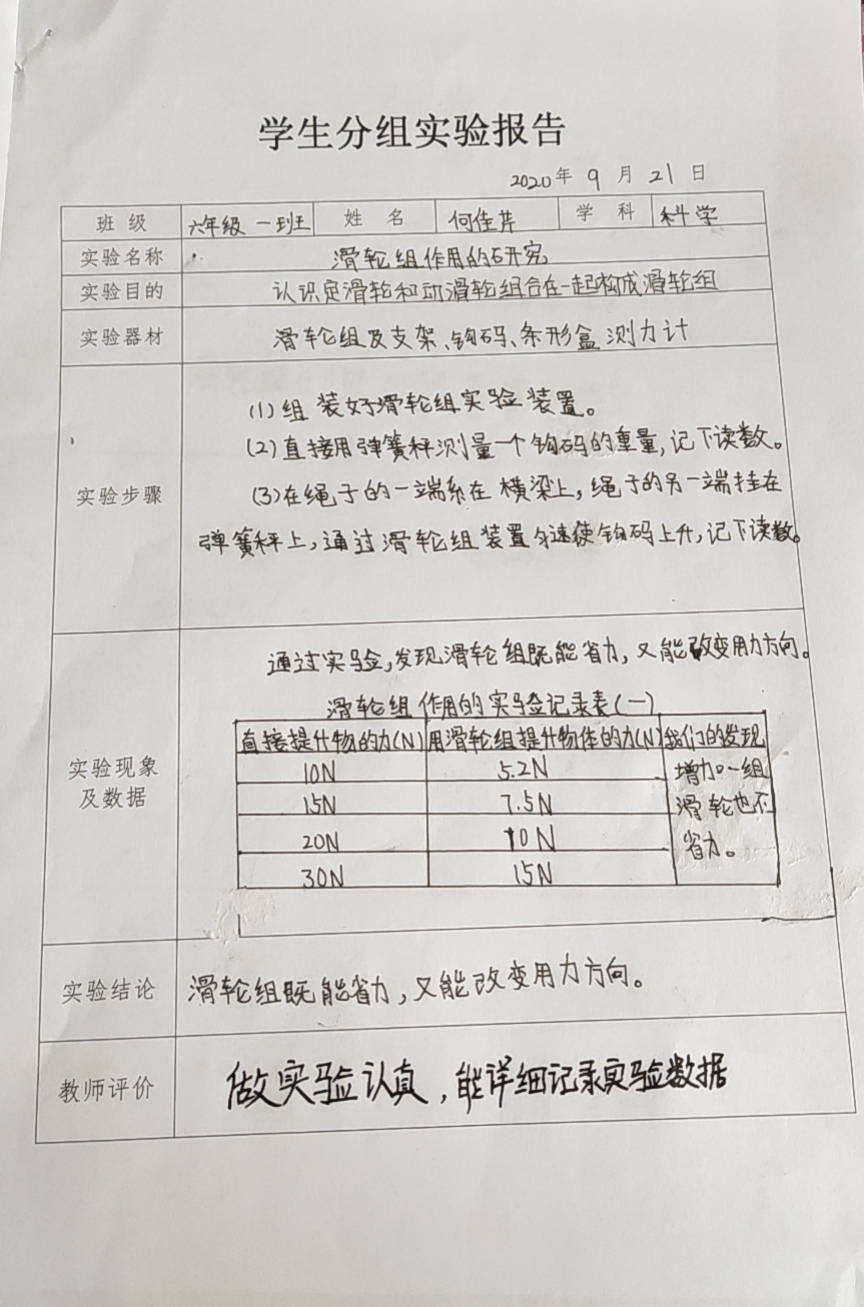 学生分组实验报告
2020年 9 月 21 日
班级 六年级 一班 姓名 何佳芹 学科 科学
实验名称 滑轮组作用的研究
实验目的 认识定滑轮和动滑轮组合在一起构成滑轮组
实验器材 滑轮组及支架、钩码、条形盒 测力计
实验步骤
(1)组装好滑轮组实验装置。
(2)直接用弹簧秤测量一个钩码的重量,记下读数。
(3)在绳子的一端系在横梁上,绳子的另一端挂在
弹簧秤上,通过滑轮组装置匀速使钩码上升,记下读数。
实验现象
及数据
通过实验,发现滑轮组既能省力,又能改变用力方向。
滑轮组作用的实验记录表(一)
直接提升物的力(N) 用滑轮组提升物体的力(N) 我们的发现
10N 5.2N 增加一组
15N 7.5N 滑轮也不
20N 10N 省力。
30N 15N
实验结论 滑轮组既能省力,又能改变用力方向。
教师评价 做实验认真,能详细记录实验数据